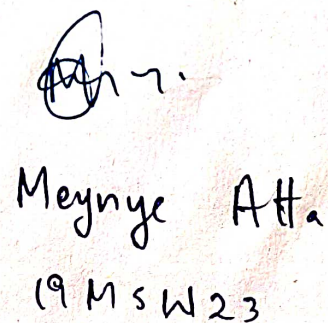 Meynye Atta
19MSW23